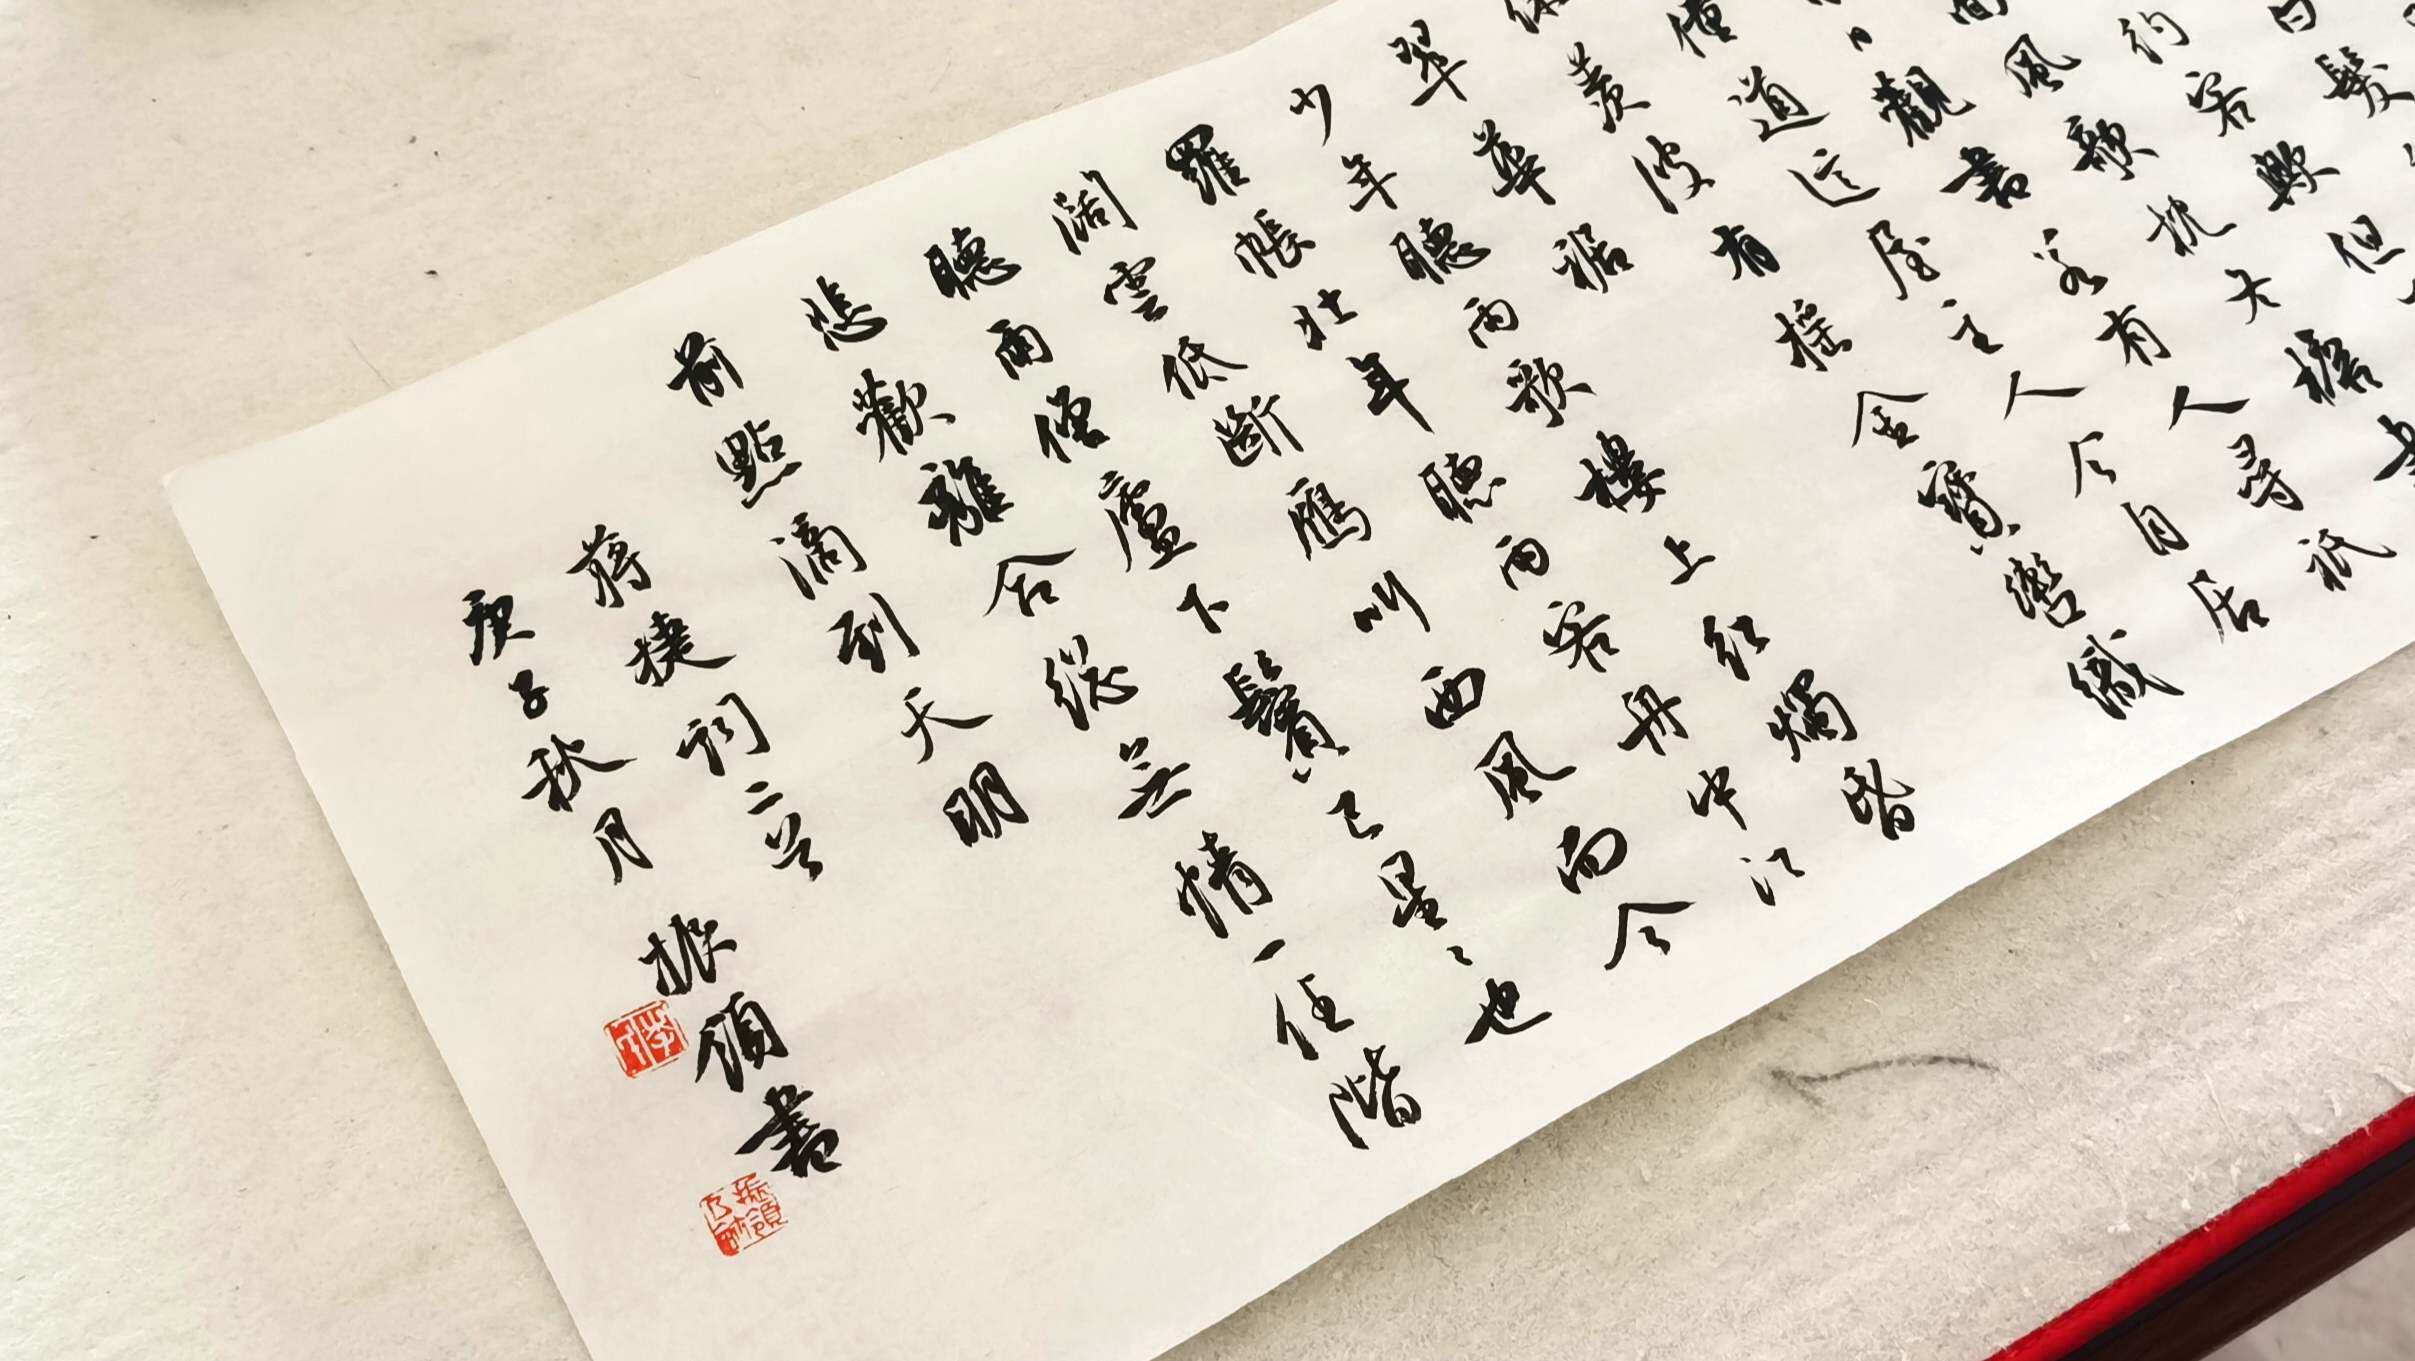 白髮
約客歟但
面風欹枕冬檐晝
日觀書若有人尋祇
僮道這屋主人今自居
休羨彼有搖金寶轡織
翠華裾
少年聽雨歌樓上紅燭昏
羅帳壯年聽雨客舟中江
闊雲低斷鴈叫西風而今
聽雨僧廬下鬢已星〻也
悲歡離合總無情一任階
前點滴到天明
蔣捷詞二首
庚子秋月 振領書